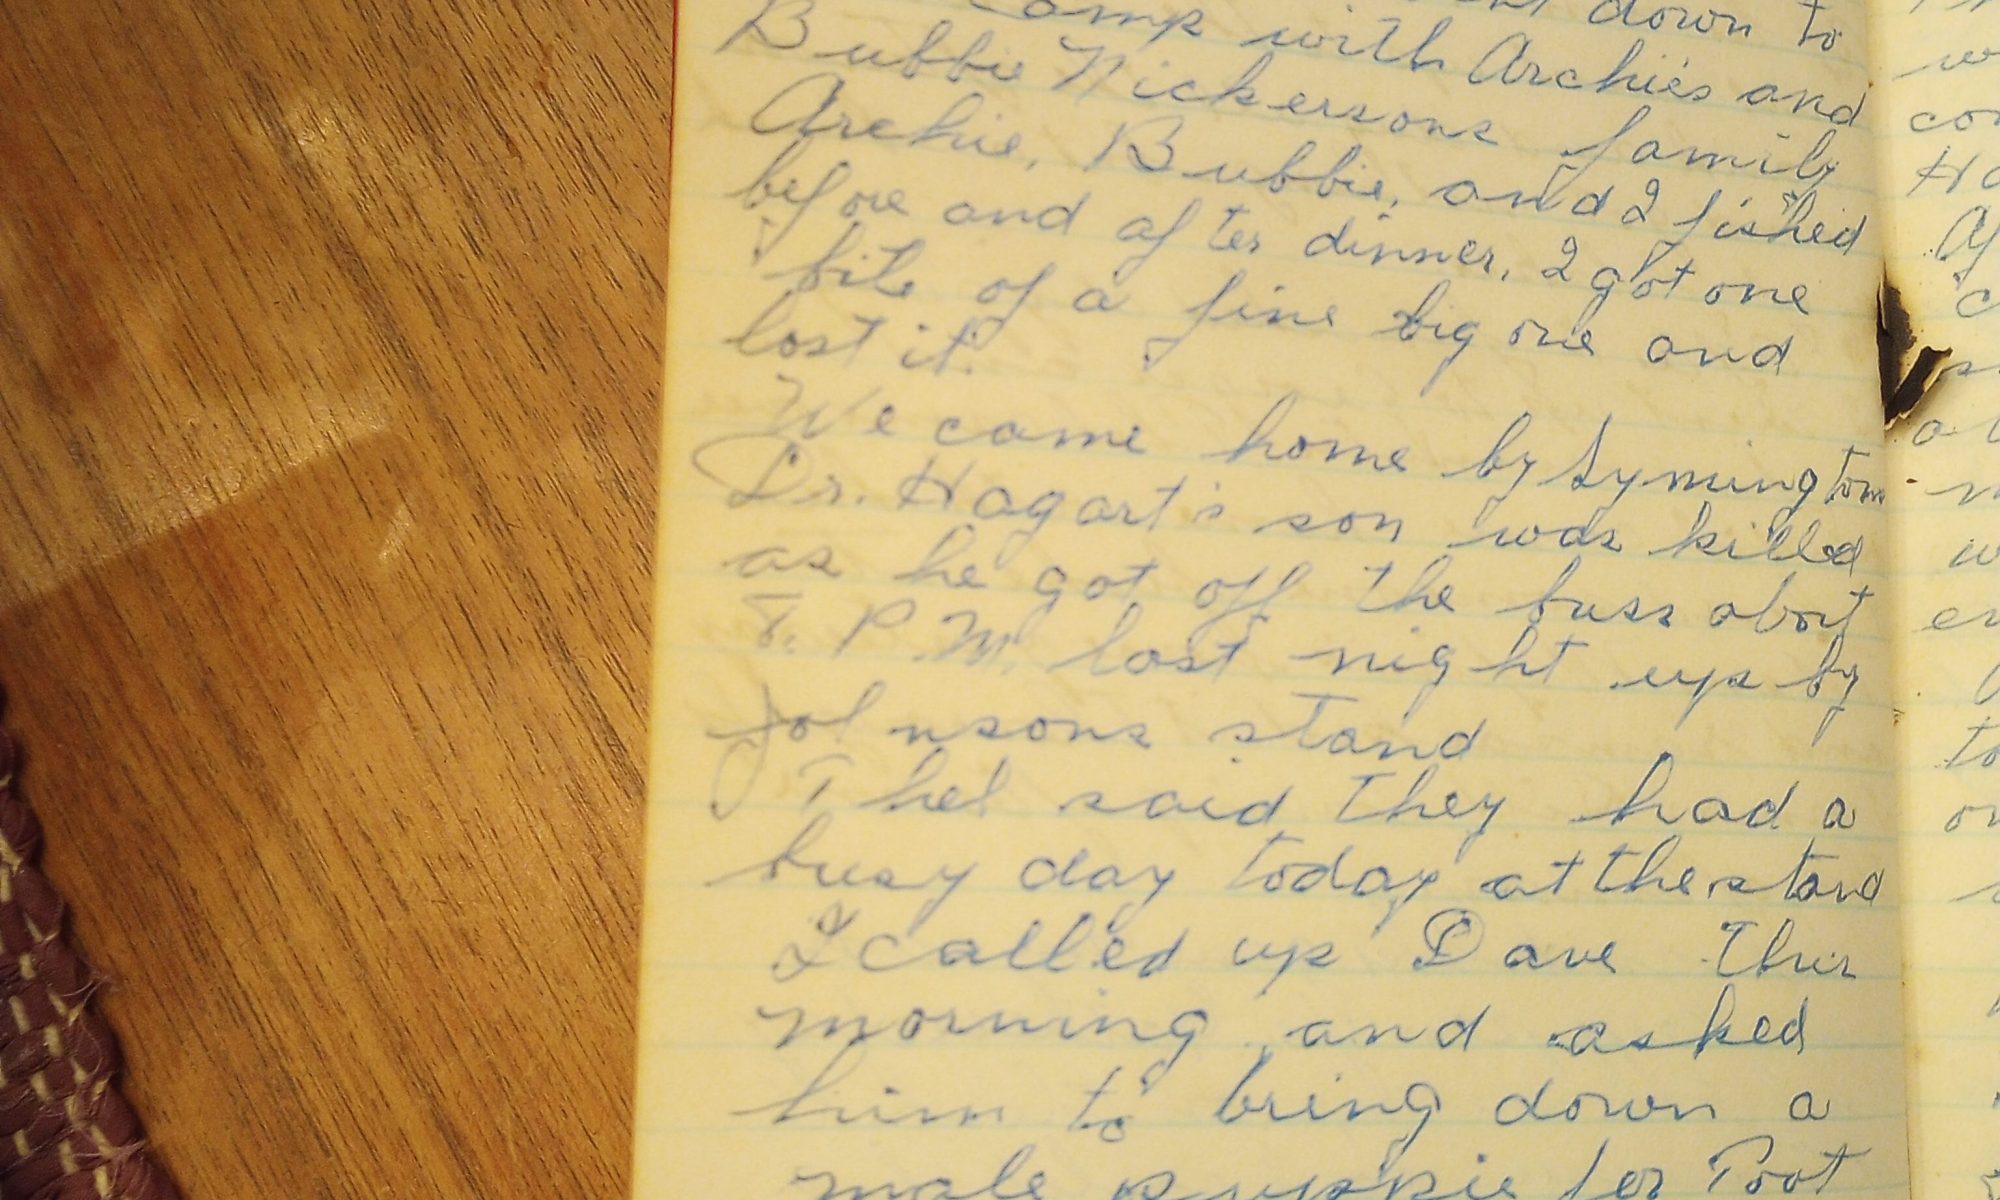 down to
Camp with Archies and
Bubbie Nickersons family
Archie, Bubbie, and I fished
before and after dinner, I got one
bite of a fine big one and
lost it.
We came home by Symingtons
Dr. Hagart's son was killed
as he got off the buss about
8. P.M. last night up by
Johnsons stand
Thel said they had a
busy day today at the stand
I called up Dave this
morning and asked
him to bring down a
male puppie for Poot